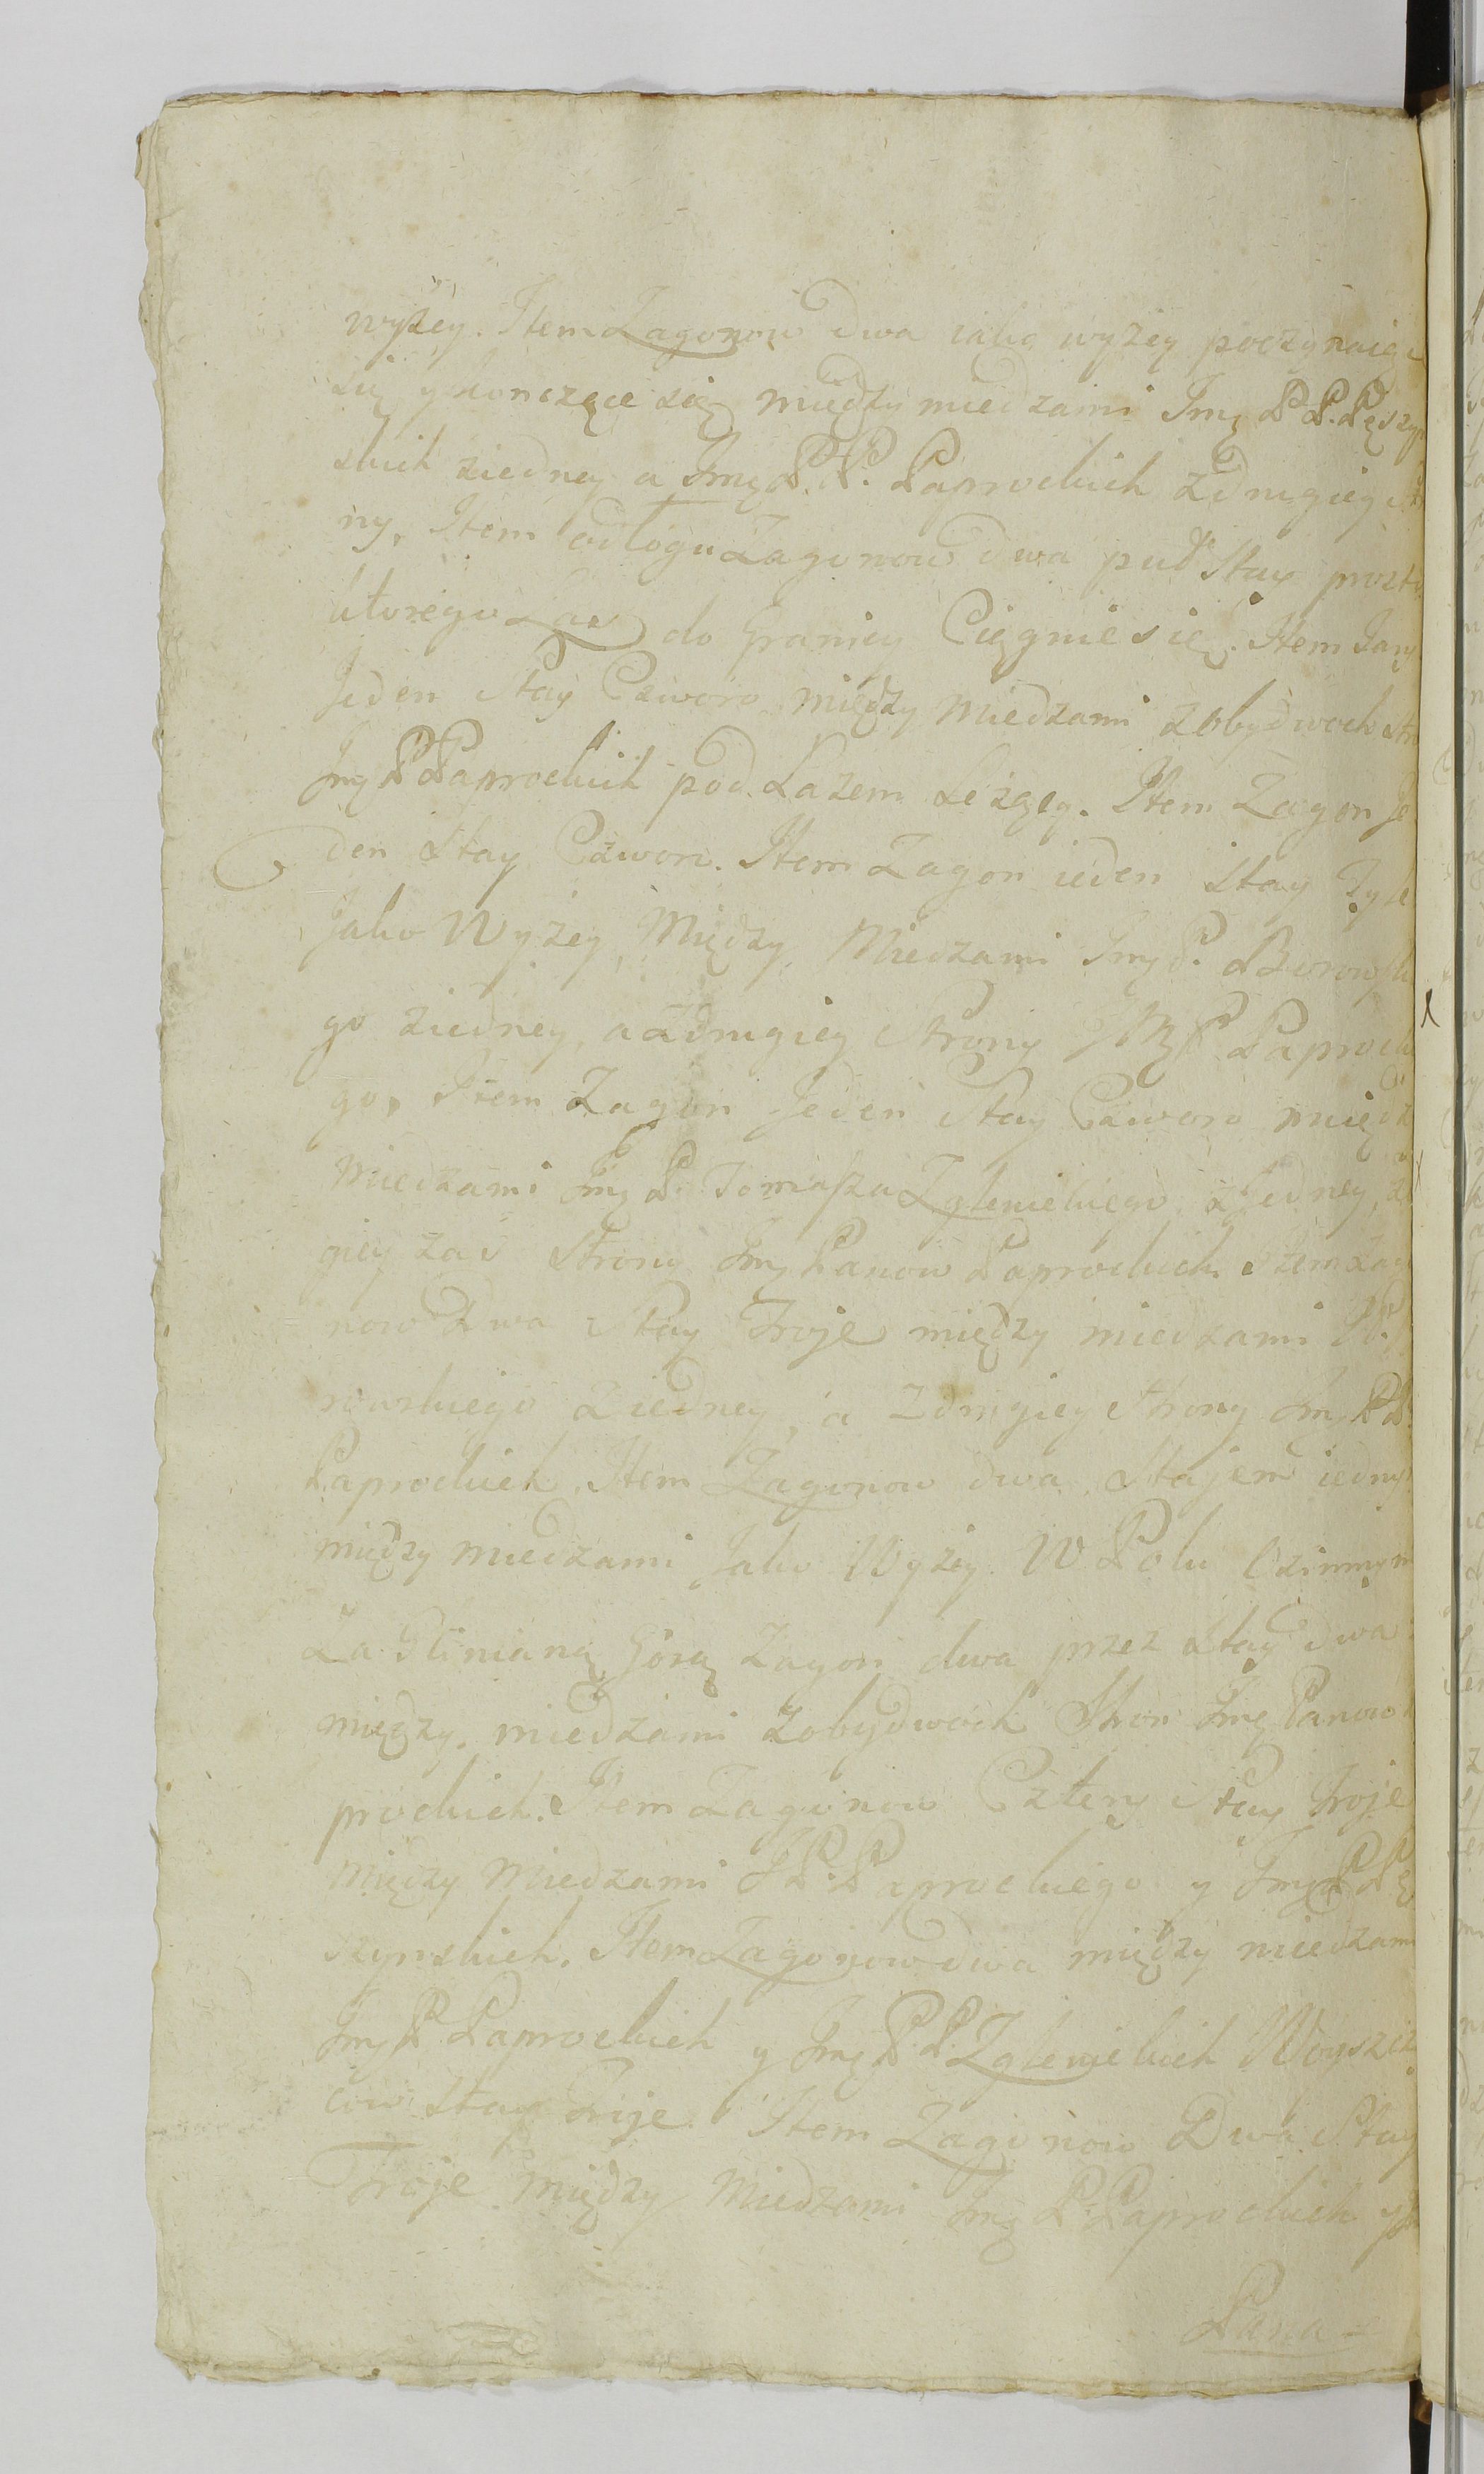 wyżey. Item Zagonow dwa iako wyżey poczynaiąc
się y kończące się między miedzami Jmę PP. Pęszyń
skich ziedney a Jmę P.P. Paprockich zdrugiey
ny, Item odłogu Zagonow dwa puł Stay
którego Las do Granicy Ciągnie się. Item
Jeden Stay Czworo między miedzami zobydwoch
Jmę PPaprockich pod Lazem Leżący. Item Zagon Je
den Stay Czworo. Item Zagon ieden Stay Tyle
Jako Wyżey, Między Miedzami Jmę P. Borowski
go ziedney, a zdrugiey Strony JMę P Paprocki
go, Item Zagon Jeden Stay Czworo międz
Miedzami Jmę P. Tomasza Zglenickiego, z Jedney,
giey zaś Strony Jmę Panow Paprockich Item Zago
now Dwa Stay Troje między miedzami
rowskiego ziedney, a zdrugiey Strony Jmę PP.
Paprockich. Item Zagonow dwa Stajem iedny
między miedzami Jako Wyżey. W Polu Ozimnym
Za Glinianą Górą Zagon dwa przez Stay dwa
między miedzami zobydwoch Stron Jmę Panow
prockich. Item Zagonow Cztery Stay Troje
między Miedzami J P. Paprockiego y Jmę P Pę
szynskich. Item Zagonow dwa między miedzami
Jmę P Paprockich y Jmę P.P. Zglenickich
cow Stay Troje Item Zagonow Dwa Stay
Troje między Miedzami Jmę P. Paprockich y
Pana-